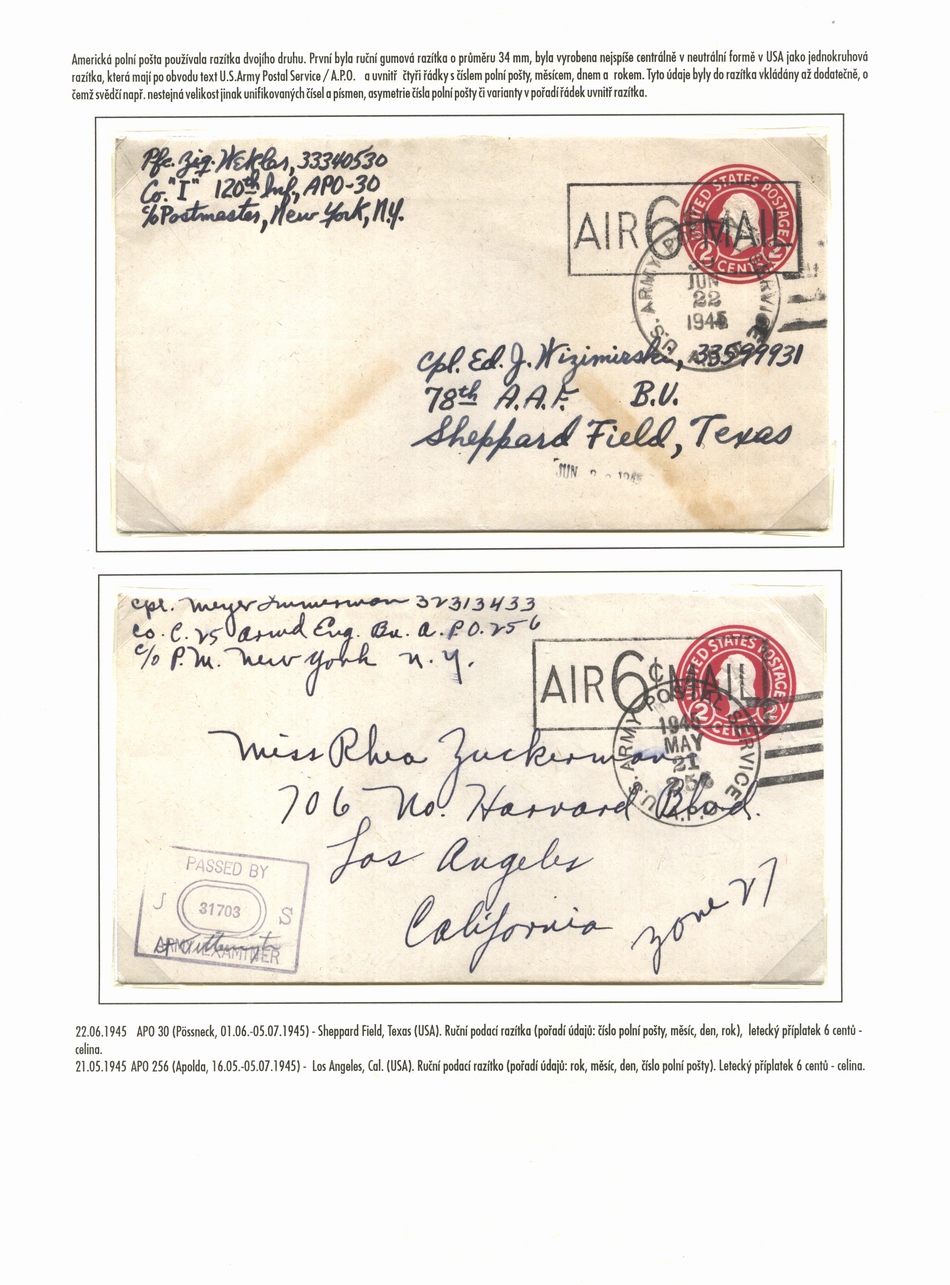 Americká polní pošta používala razítka dvojího druhu. První byla ruční gumová razítka o průměru 34 mm, byla vyrobena nejspíše centrálně v neutrální formě v USA jako jednokruhová
razítka, která mají po obvodu text U.S.Army Postal Service / A.P.O. a uvnitř čtyři řádky s číslem polní pošty, měsícem, dnem a rokem. Tyto údaje byly do razítka vkládány až dodatečně, o
čemž svědčí např. nestejná velikost jinak unifikovaných čísel a písmen, asymetrie čísla polní pošty či varianty v pořadí řádek uvnitř razítka.
Pfc. Zig. 33340530
Co. "I" 120th Inf, APO-30
c/o Postmaster, New York, N.Y.
UNITED STATES POSTAGE
2 CENTS 2
AIR 6¢ MAIL
U.S. ARMY POSTAL SERVICE
JUN
22
1945
A.P.O.
Cpl. Ed. J. 33599931
78th A.A.F. B.U.
Sheppard Field, Texas
JUN 1945
Cpl. Meyer Zimmerman 32313433
Co. C. 25 Armd Eng. Bn. A.P.O. 256
c/o P.M. New York N.Y.
UNITED STATES POSTAGE
2 CENTS
AIR 6¢ MAIL
U.S. ARMY POSTAL SERVICE
1945
MAY
21
256
A.P.O.
Miss Rhea Zuckerman
706 No. Harvard Blvd.
Los Angeles
California
zone 27
PASSED BY
J 31703 S
ARMY EXAMINER
22.06.1945 APO 30 (Pössneck, 01.06.-05.07.1945) - Sheppard Field, Texas (USA). Ruční podací razítka (pořadí údajů: číslo polní pošty, měsíc, den, rok), letecký příplatek 6 centů -
celina.
21.05.1945 APO 256 (Apolda, 16.05.-05.07.1945) - Los Angeles, Cal. (USA). Ruční podací razítko (pořadí údajů: rok, měsíc, den, číslo polní pošty). Letecký příplatek 6 centů - celina.